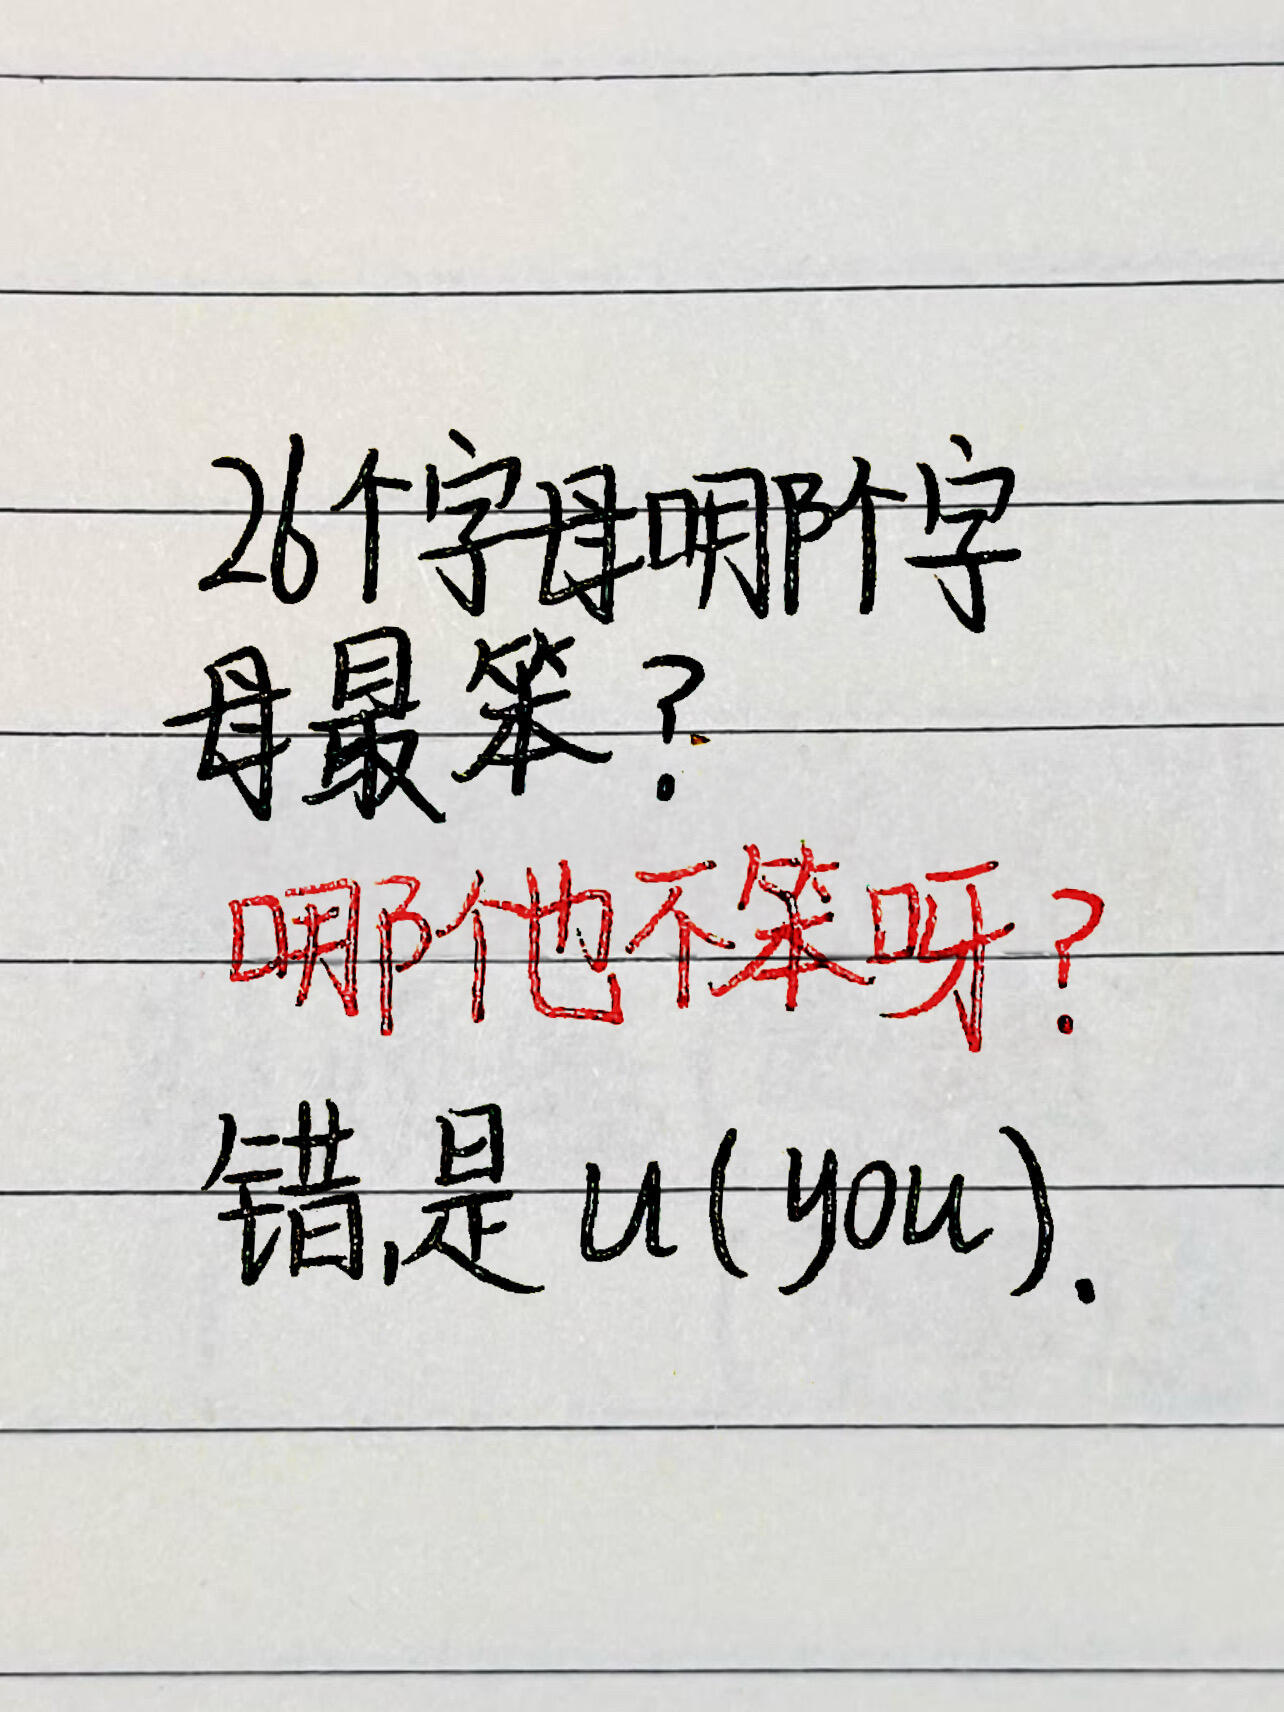 26个字母哪个字
母最笨?
哪个也不笨呀?
错,是u(you).